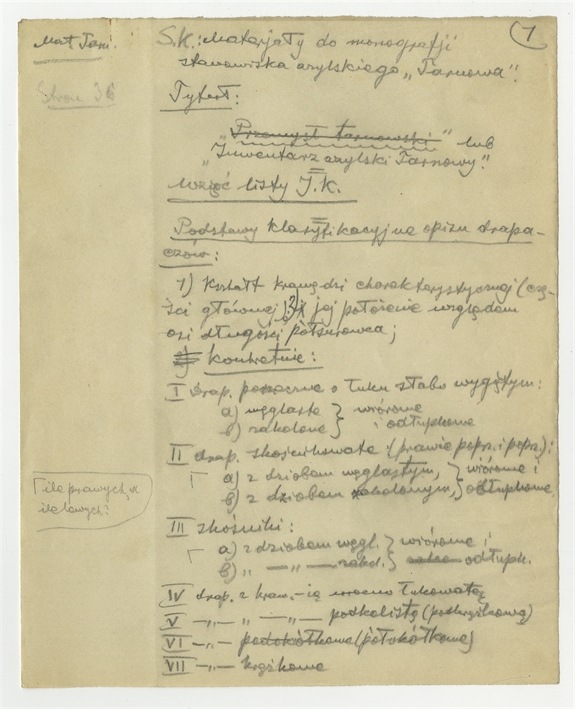 1
Mat. Tarn.
Stron 36
S.K.: Materjały do monografji
stanowiska azylskiego „Tarnowa".
Tytuł:
„Przemysł tarnowski" lub
„Inwentarz azylski Tarnowy".
Wziąć listy J.K.
Podstawy klasyfikacyjne opisu drapa-
czów:
1) Kształt krawędzi charakterystycznej (czę-
ści głównej) 2) jej położenie względem
osi długości półsurowca;
konkretnie:
I drap. poprzeczne o łuku słabo wygiętym:
a) węglaste } wiórowe
b) zakolone } i odłupkowe
II drap. skośnikowate (prawie poprz. i poprz.):
a) z dziobem węglastym, } wiórowe i
b) z dziobem zakolonym, } odłupkowe
ile prawych, a
ile lewych?
III skośniki:
a) z dziobem węgl. } wiórowe i
b) „ —„— zakol. } odłupk.
IV drap. z kraw.-ią mocno łukowatą
V —„— „ —„— podkolistą (podkrążkową)
VI —„— (półokółkowe)
VII —„— krążkowe